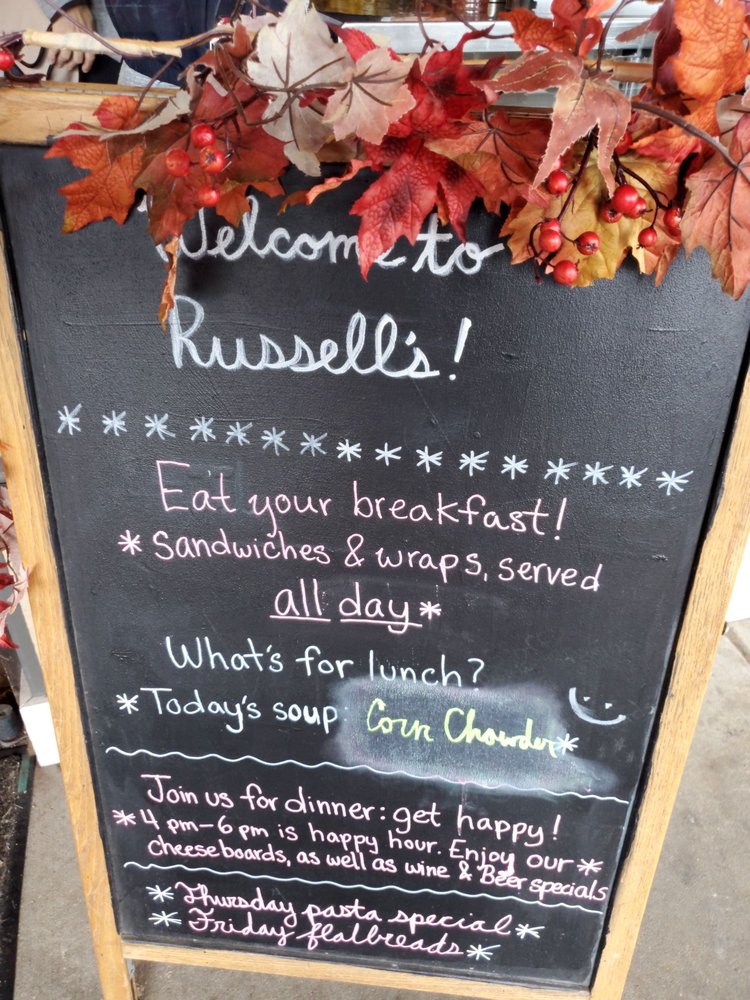 Welcome to
Russell's!
* * * * * * * * * * * * * * * *
Eat your breakfast!
* Sandwiches & wraps, served
all day *
What's for lunch?
* Today's soup: Corn Chowder *
Join us for dinner: get happy!
* 4 pm – 6 pm is happy hour. Enjoy our *
cheeseboards, as well as wine & Beer specials
* Thursday pasta special *
* Friday flatbreads *